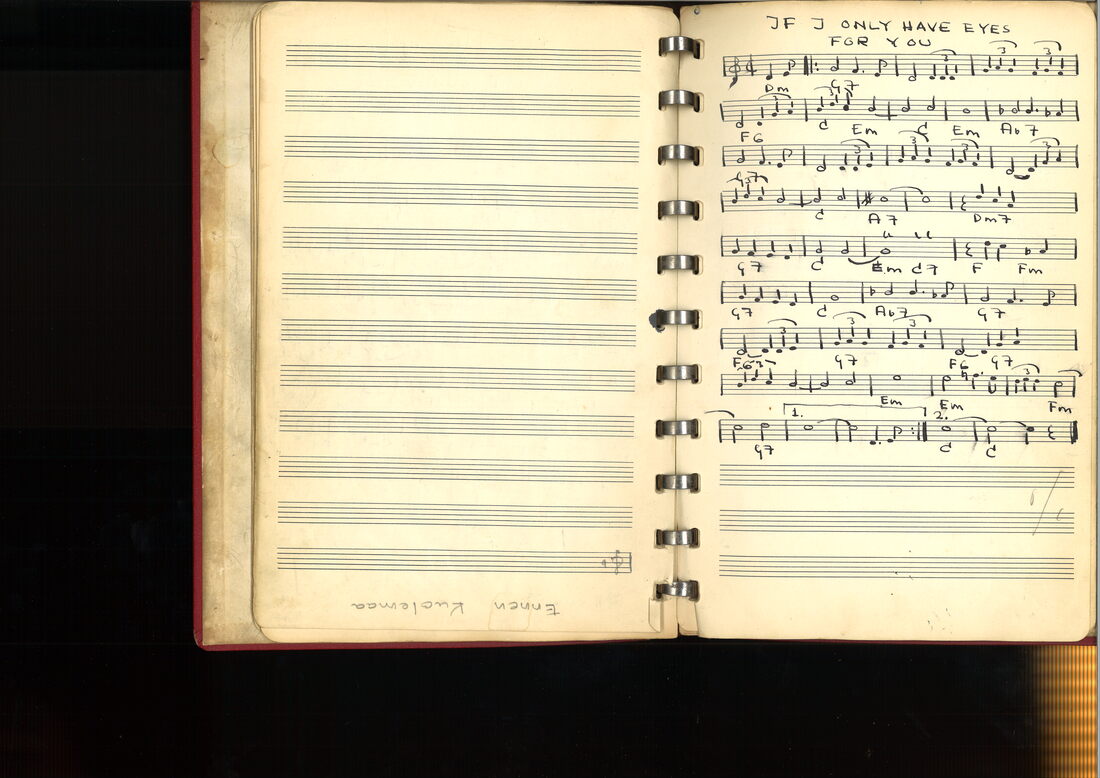 Ennen Kuolemaa
IF I ONLY HAVE EYES
FOR YOU
3 3 3
Dm 3 3 G7
C Em C Em Ab7
F6 3 3 3 3
G7 3
C A7 Dm7
G7 C Em C7 F Fm
G7 C Ab7 G7
3 3 3
F6 3 G7 F6 G7
3
Em Em Fm
1. 2.
G7 C C